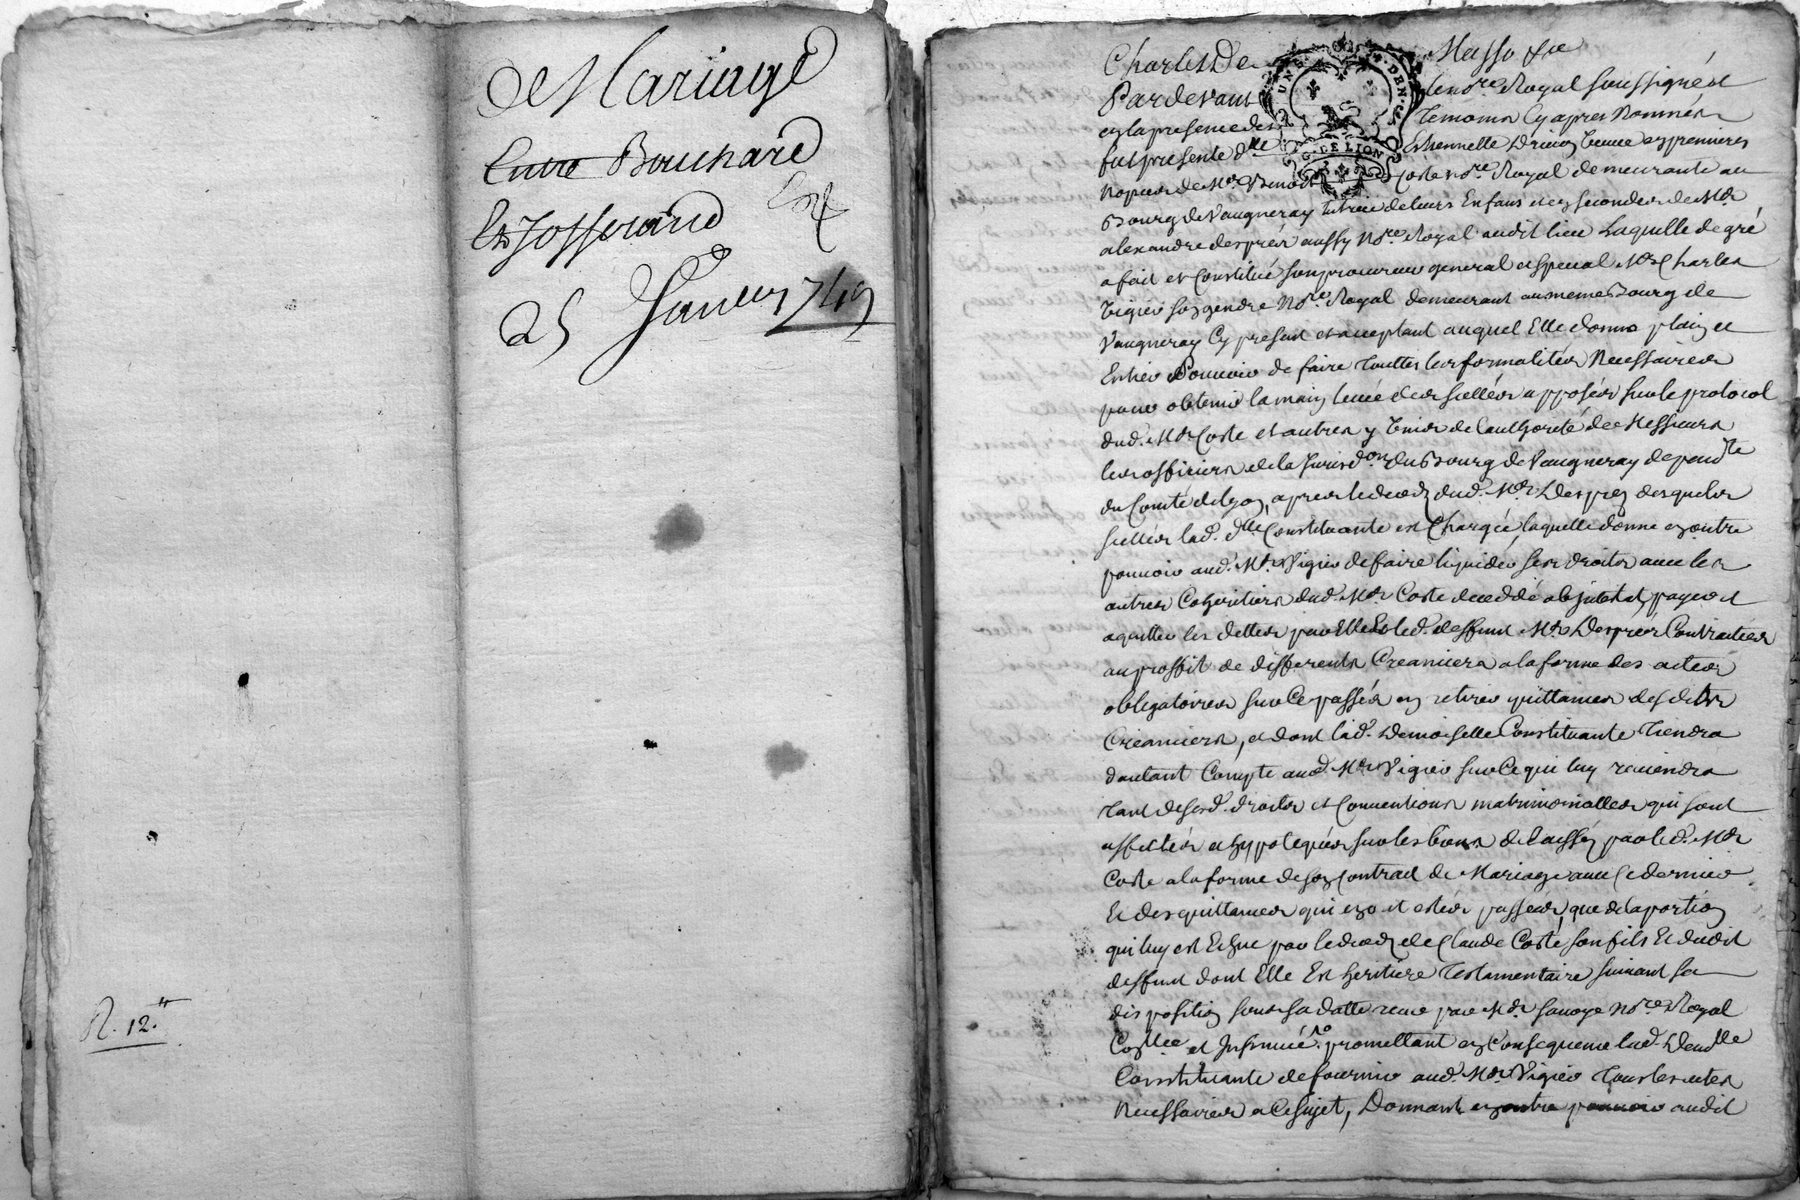 Mariage
Entre Bouchard
Et Josserand
Ext
25 Janvier 1749
R. 12.tt
Charles De Masso &ce
Pardevant le no.re Royal soussigné et
en la presence des Temoins Cy apres Nommés
fut presente d.lle Ethiennette Veuve en premieres
Nopces de M.r Benoit Coste no.re Royal demeurante au
Bourg de Vaugneray tutrice de leurs Enfans et en secondes de M.r
alexandre despres aussy No.re Royal audit lieu Laquelle de gré
a fait et Constitué son procureur general et special M.r Charles
Vigier son gendre No.re Royal demeurant au meme Bourg de
Vaugneray Cy present et acceptant auquel Elle donne plain et
Entier Pouvoir de faire Touttes les formalités Necessaires
pour obtenir la main levée des scellés apposés sur le protocol
dud. M.r Coste et autres y Tenir de l'authorité de Messieurs
les officiers de la Jurisd.on du Bourg de Vaugneray depend.te
du Comté de Lyon, apres le deced dud. M.r Desprez desquels
scellés lad. d.lle Constituante est Chargée, laquelle donne en outre
pouvoir aud. M.r Vigier de faire liquider ses droits avec les
autres Coheritiers dud. M.r Coste decedé ab intestat, payer et
aquitter les dettes par Elle Et led. deffunt M.r Despres Contractées
au proffit de differents Creanciers a la forme des actes
obligatoires sur ce passés en retirer quittances desdits
Creanciers, et dont lad. Demoiselle Constituante Tiendra
dautant Compte aud. M.r Vigier sur ce qui luy reviendra
Tant de sesd. droits et Conventions matrimonialles qui sont
affectés et hypotequés sur les biens delaissés par led. M.r
Coste a la forme de son Contract de Mariage avec Ce dernier
Et des quittances qui en ont estés passées, que de la portion
qui luy est Echue par le deced de Claude Coste son fils Et dudit
deffunt dont Elle Est heritiere Testamentaire suivant sa
disposition sous sa datte recue par M.r Savoye No.re Royal
et Insinuée promettant en Consequence lad. Dem.lle
Constituante de fournir aud. M.r Vigier Tous les actes
Necessaires a Ce sujet, Donnant en outre pouvoir audit